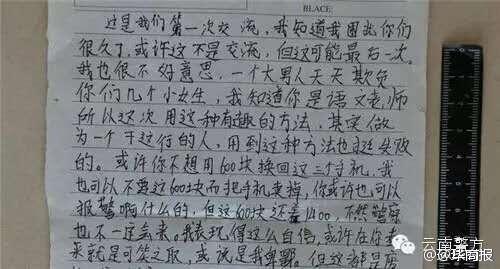 BLACE:
这是我们第一次交流,我知道我困扰你们
很久了,或许这不是交流,但这可能最后一次。
我也很不好意思,一个大男人天天欺负
你们几个小女生,我知道你是语文老师
所以这次用这种有趣的方法,其实做
为一个干这行的人,用到这种方法也挺失败
的。或许你不想用600块换回这三个手机,我
也可以不要这600块而把手机卖掉,你或许也可以
报警啊什么的,但这600块还差1400,不然警察
也不一定会来。我表现得这么自信,或许在你看
来就是可笑之取,或说是我卑鄙。但这都是
云南警方
@华商报